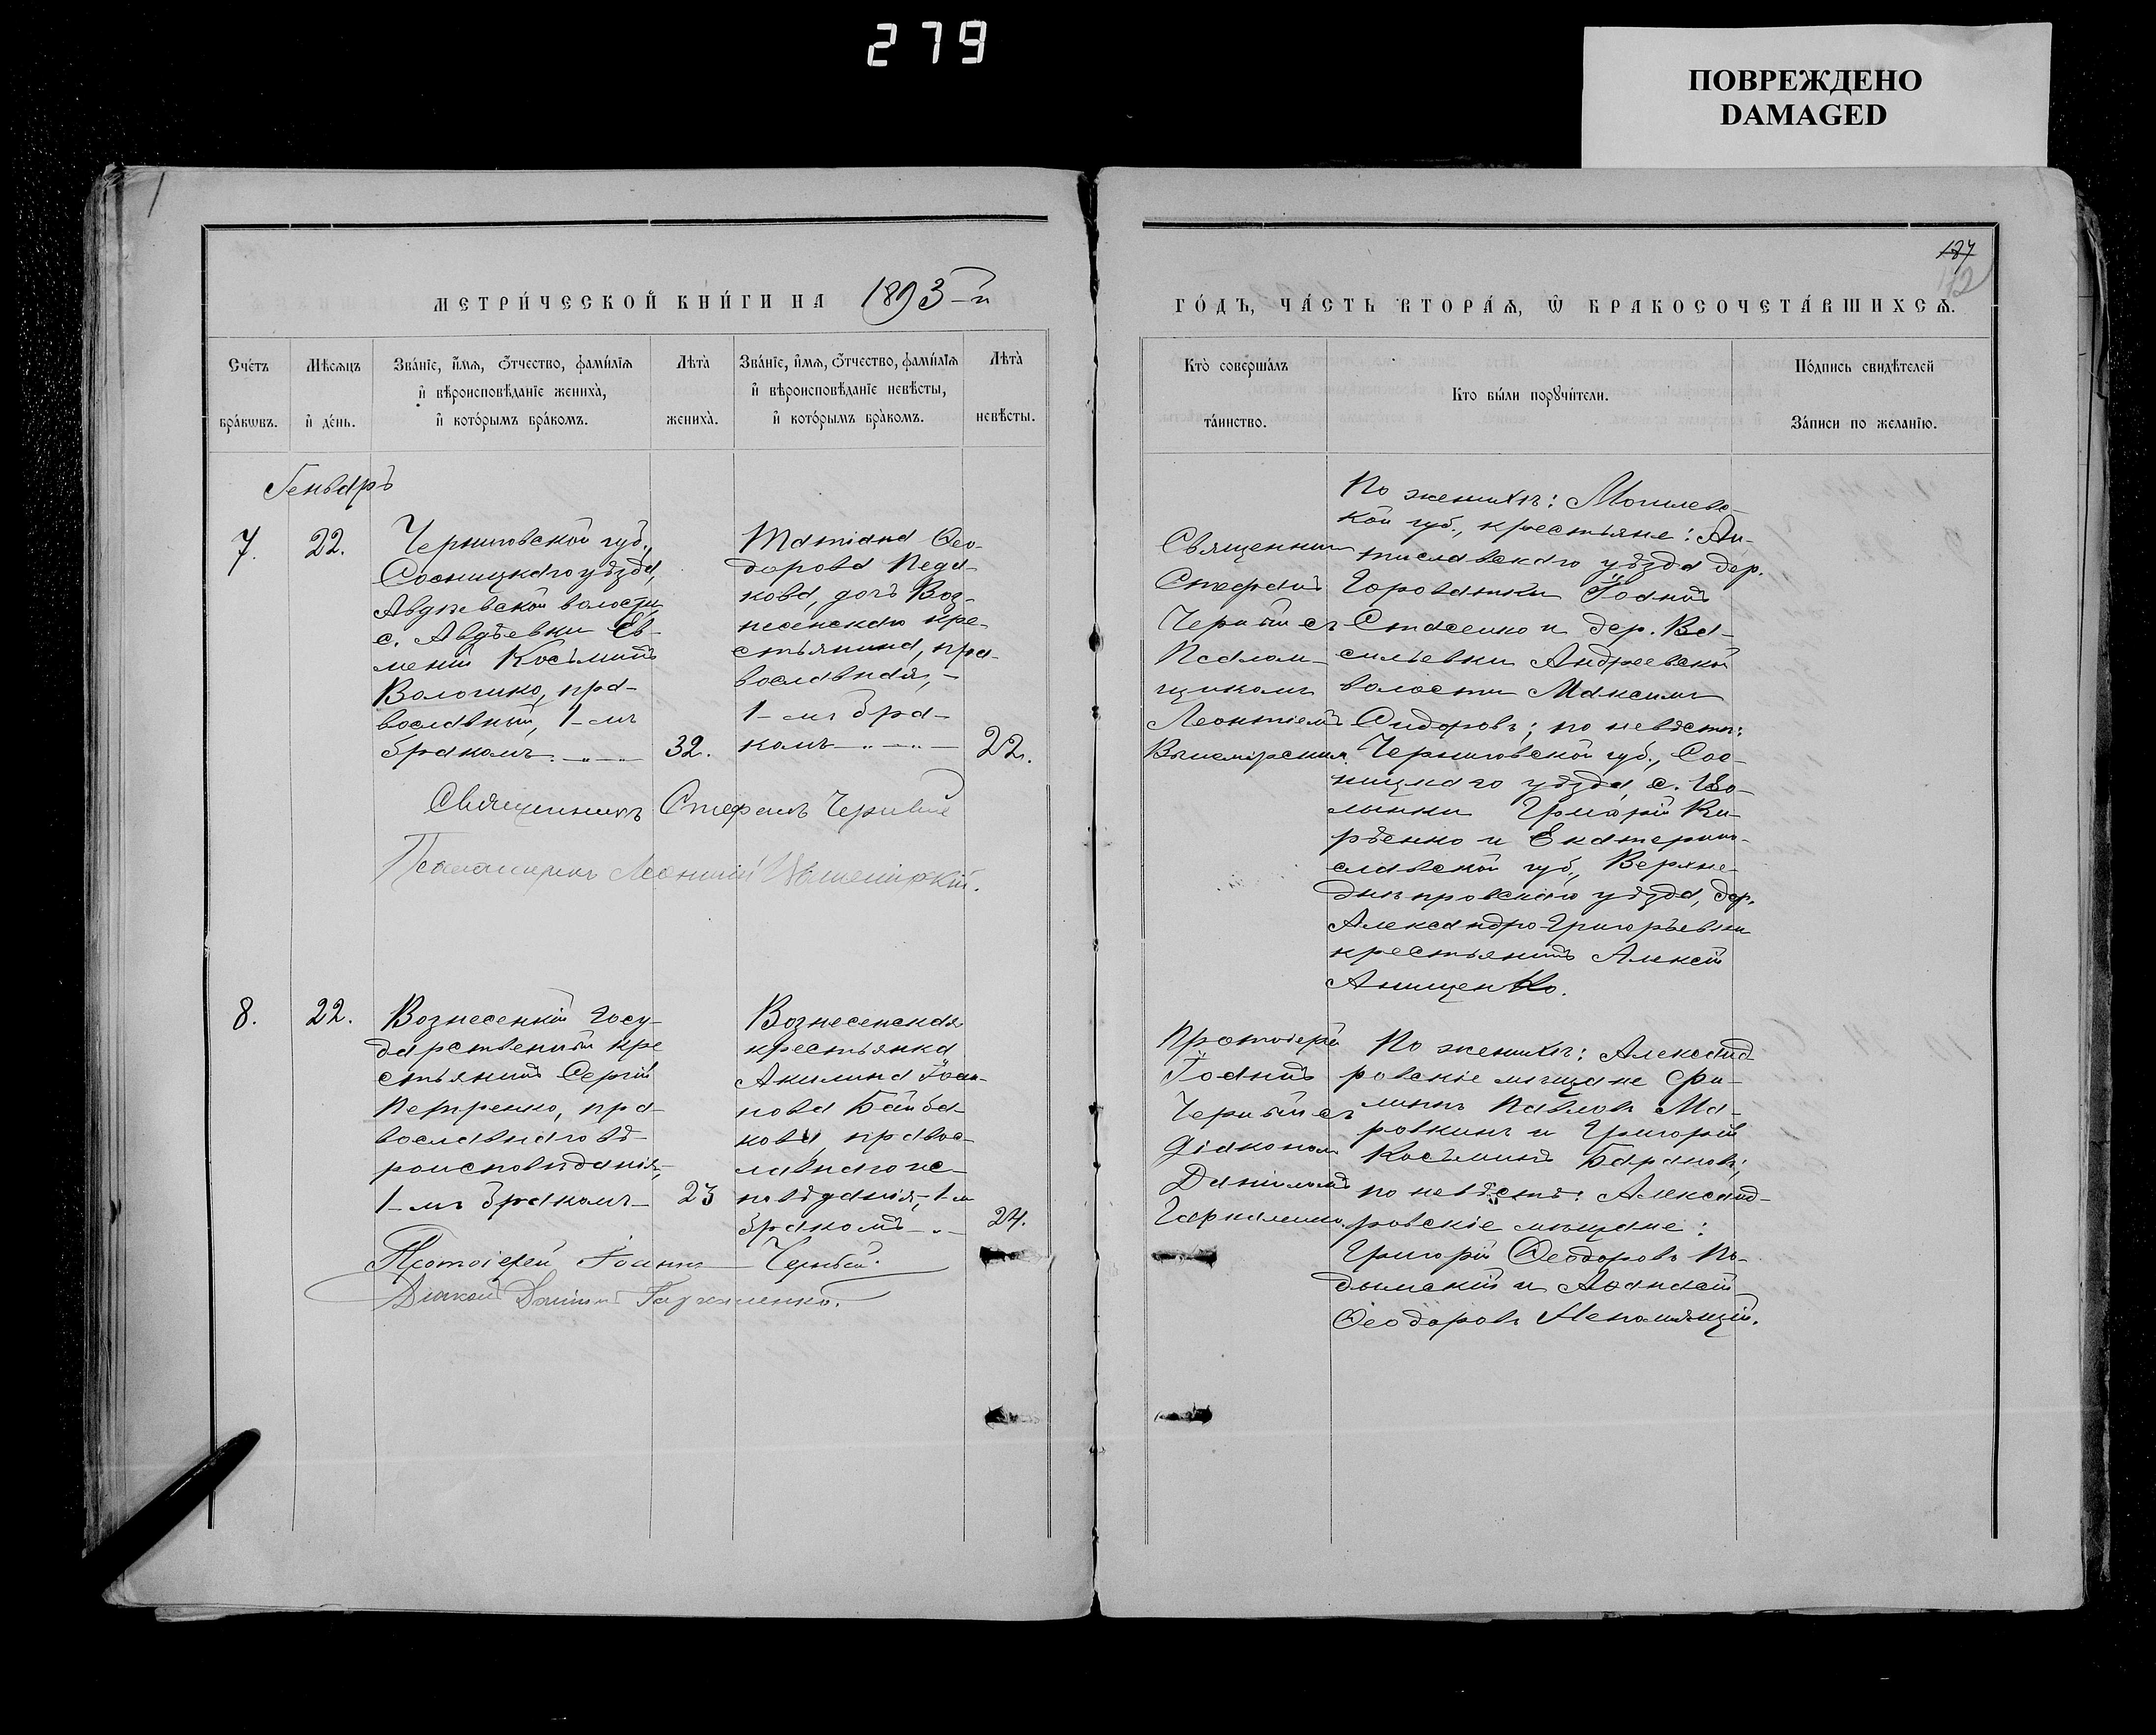 279
ПОВРЕЖДЕНО
DAMAGED
МЕТРИ́ЧЕСКОЙ КНИ́ГИ НА 1893-й
Сче́тъ бра́кѡвъ.
Мѣ́сяцъ и҆ де́нь.
Зва́нїе, и҆́мѧ, ѻ҆́тчество, фами́лїѧ
и҆ вѣроисповѣ́данїе жениха̀,
и҆ кото́рымъ бра́комъ.
Лѣта̀ жениха̀.
Зва́нїе, и҆́мѧ, ѻ҆́тчество, фами́лїѧ
и҆ вѣроисповѣ́данїе невѣ́сты,
и҆ кото́рымъ бра́комъ.
Лѣта̀ невѣ́сты.
Геньваръ
7.
22.
Черниговской губ.,
Сосницкаго уѣзда,
Авдѣевской волости
с. Авдѣевки Ев-
мений Косьминъ
Волошко, пра-
вославный, 1-мъ
бракомъ
32.
Татіана Ѳео-
дорова Педа-
кова, дочь Воз-
несенскаго кре-
стьянина, пра-
вославная,
1-мъ бра-
комъ
22.
Священникъ Стефанъ Черный
Псаломщикъ Леонтій Вышемірскій.
8.
22.
Вознесенкій госу-
дарственный кре
стьянинъ Сергій
Петренко, пра-
вославнаго вѣ-
роисповѣданія,
1-мъ бракомъ
23
Вознесенская
крестьянка
Акилина Іоан-
нова Байба-
кова, правос-
лавнаго ис-
повѣданія, 1-м
бракомъ
24.
Протоіерей Іоаннъ Черный.
Діаконъ Даниилъ Гаркаленко.
187
172
ГО́ДЪ, ЧА́СТЬ ВТОРА́Ѧ, Ѡ҆ БРАКОСОЧЕТА́ВШИХСѦ.
Кто̀ соверша́лъ
та́инство.
Кто бы́ли порꙋчи́тели.
По́дпись свидѣ́телей
За́писи по жела́нїю.
Священник
Стефанъ
Черный съ
Псалом-
щикомъ
Леонтіемъ
Вышемірским
По женихѣ: Могилевс-
кой губ., крестьяне:
тиславскаго уѣзда дер.
Городатки Іоаннъ
Стасенко и дер. Ва-
сильевки Андреевской
волости Максимъ
Сидоровъ; по невѣстѣ:
Черниговской губ., Сос-
ницкаго уѣзда, с.
лынки Григорій Ки-
рѣенко и Екатерино-
славской губ., Верхне-
днѣпровскаго уѣзда, дер.
Александро-Григорьевки
крестьянинъ Алексѣй
Анищенко.
Протоіерей
Іоаннъ
Черный съ
діакономъ
Даніиломъ
Гаркаленко.
По женихѣ: Александ-
ровскіе мѣщане Фи-
липпъ Павловъ Ма-
ровкинъ и Григорій
Косьминъ Барановъ;
по невѣстѣ: Александ-
ровскіе мѣщане:
Григорій Ѳеодоровъ По-
дымскій и Аѳанасій
Ѳеодоровъ Непомнящій.